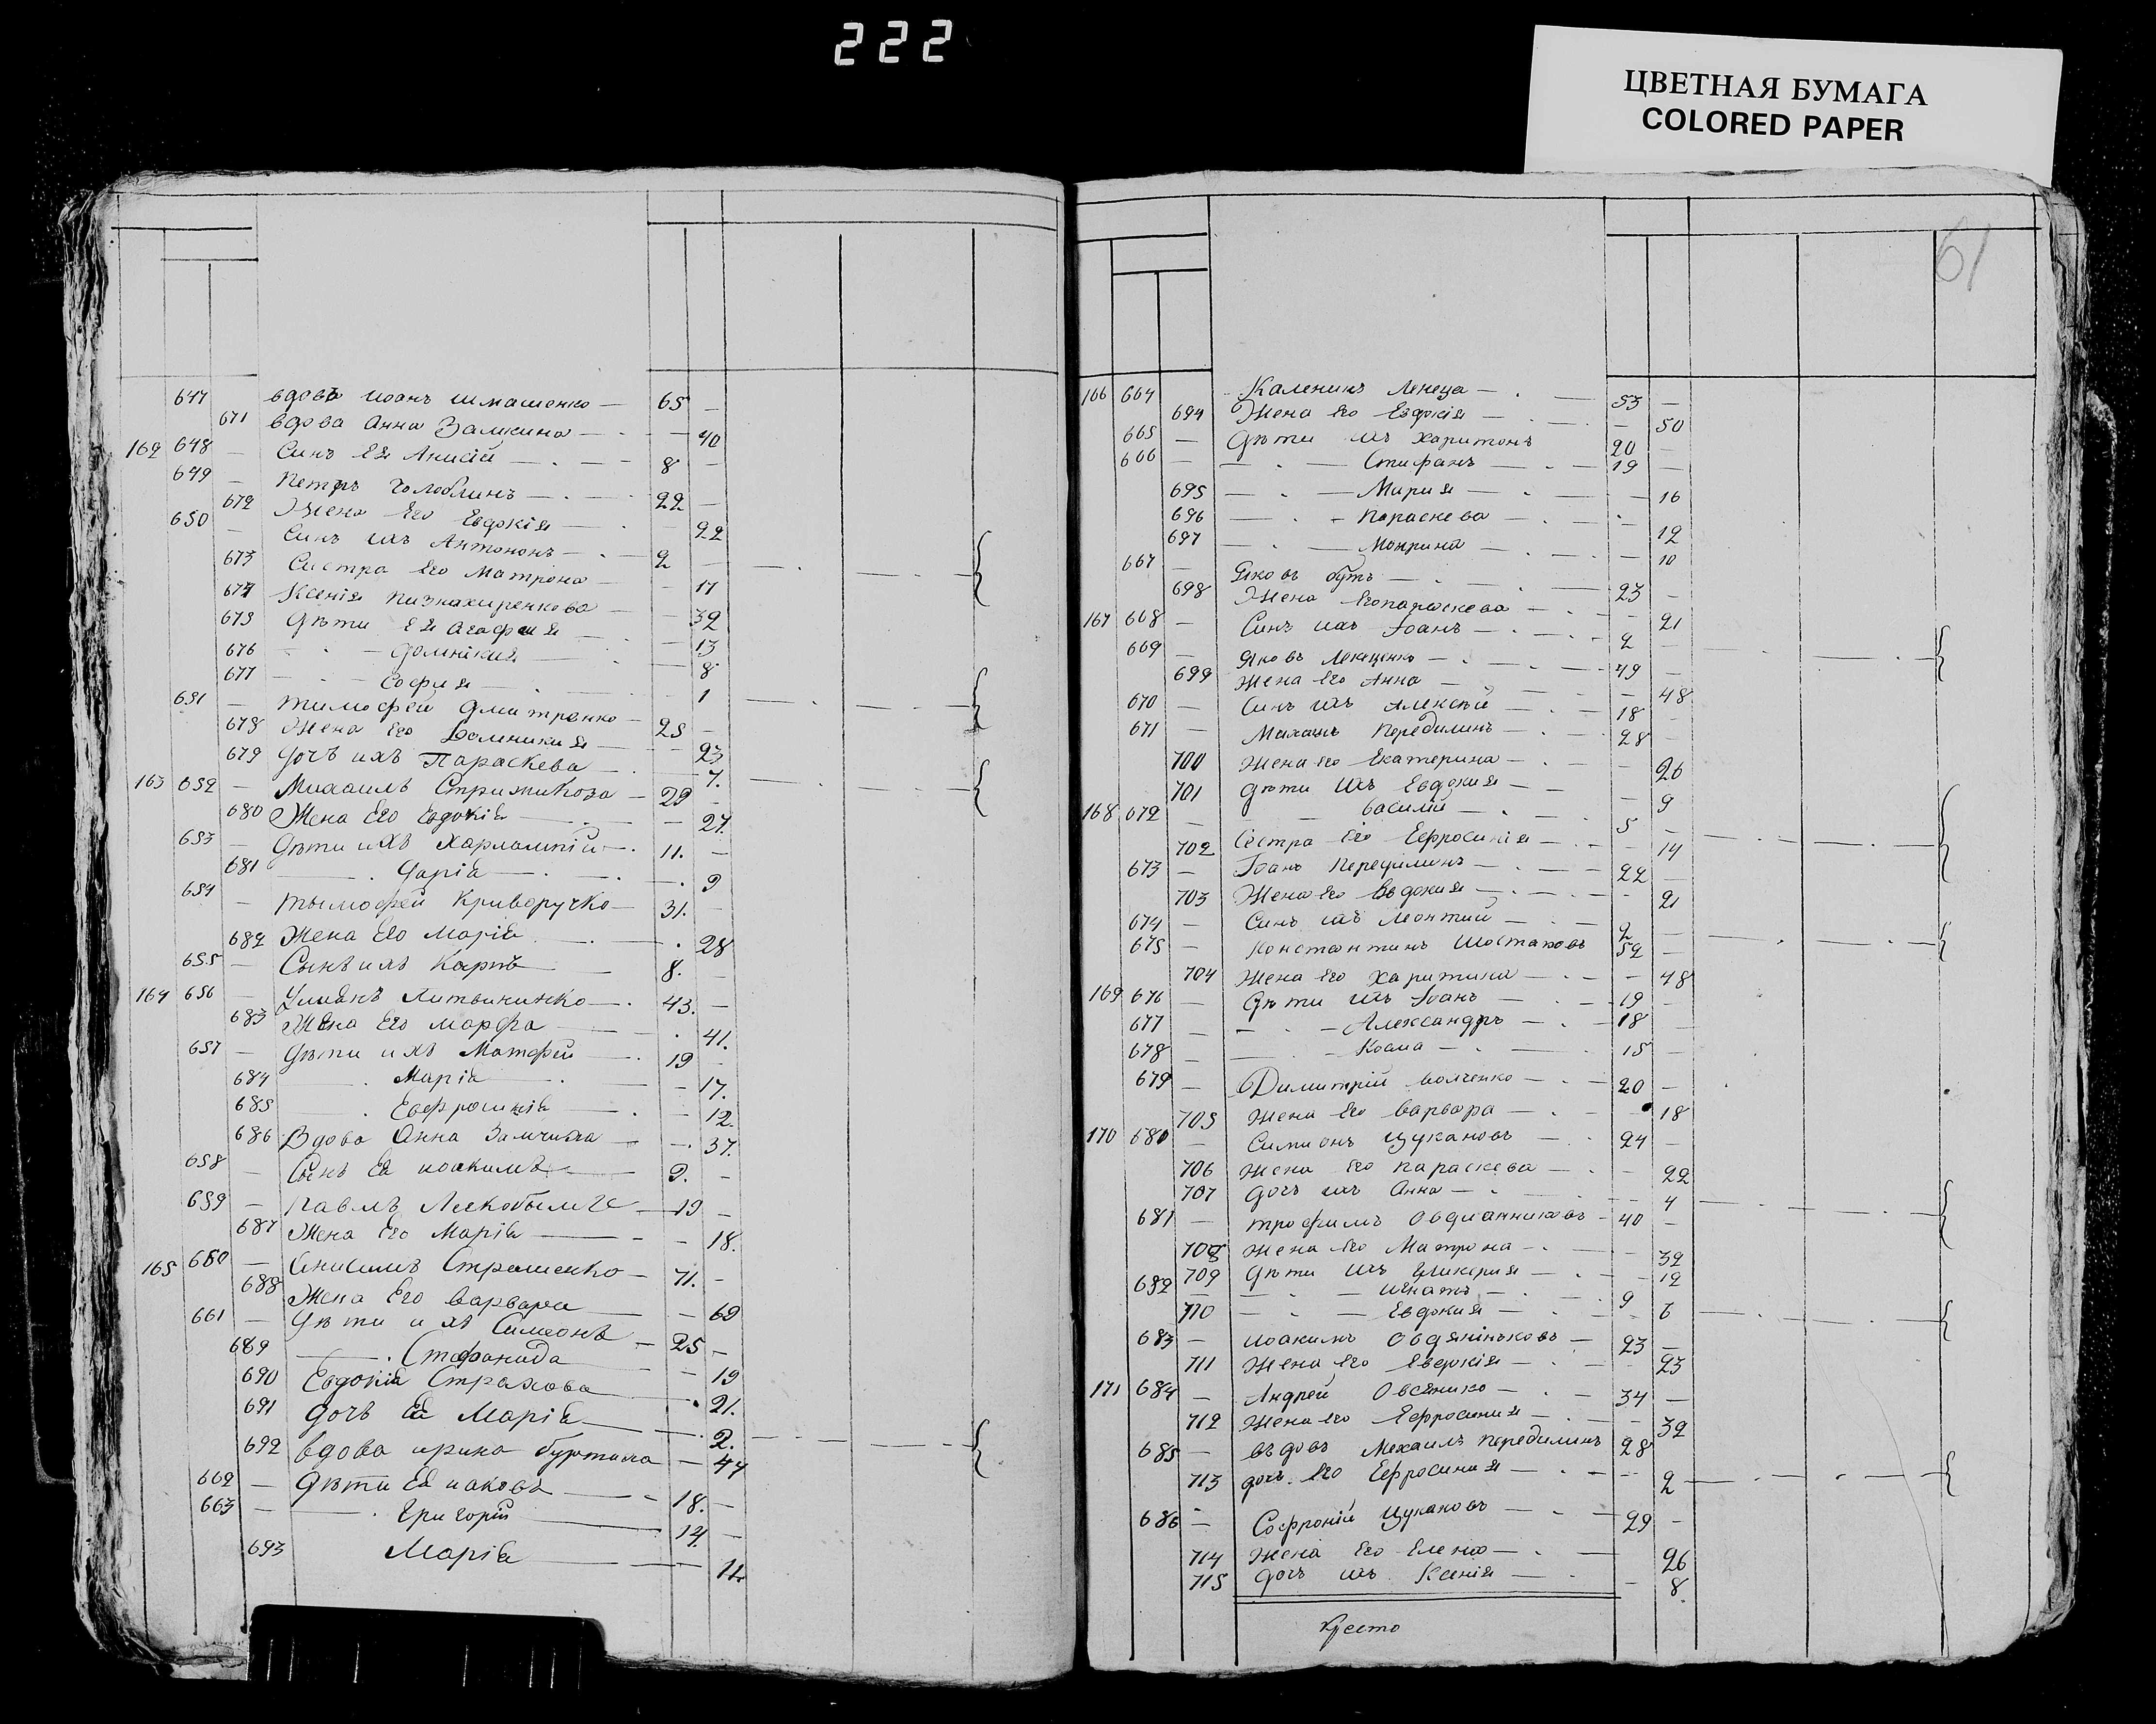 222
ЦВЕТНАЯ БУМАГА
COLORED PAPER
647 вдовъ иоанъ шмашенко — 65 —
671 вдова Анна Замкина — 40
162 648 — Синъ Ея Анисій — 8 —
649 — Петръ Голоблинъ — 22 —
672 Жена Его Евдокія — 22
650 — Синъ ихъ Антононъ — 2 —
673 Систра Его Матрона — 17
674 Ксенія Пизнахиренкова — 39
675 Дѣти Ея Агафия — 13
676 — Домникия — 8
677 — София — 1
651 — Тимофей Дмитренко — 25 —
678 Жена Его Домникия — 23
679 Дочъ ихъ Параскева — 7.
163 652 — Михаилъ Стрижикоза — 29 —
680 Жена Его Евдокія — 27.
653 — Дѣти ихъ Харлампій — 11. —
681 — Дарія — 9
654 — Тымофей Криворучко — 31. —
682 Жена Его Марія — 28
655 — Сынъ ихъ Карпъ — 8. —
164 656 — Улианъ Литвиненко — 43. —
683 Жена Его Марфа — 41.
657 — Дѣти ихъ Матфей — 19 —
684 — Марія — 17.
685 — Евфросинія — 12.
686 Вдова Анна — 37.
658 — Сынъ Ея иоакимъ — 9. —
659 — Павлъ — 19 —
687 Жена Его Марія — 18.
165 660 — Анисимъ Страшенко — 71. —
688 Жена Его Варвара — 60
661 — Дѣти ихъ Симеонъ — 25 —
689 — Стефанида — 19
690 Евдокія Страхова — 21.
691 Дочъ Ея Марія — 2.
692 Вдова ирина Буртила — 47
662 — Дѣти Ея иаковъ — 18. —
663 — Григорій — 14 —
693 Марія — 11.
61
166 664 Каленикъ Ленеца — 53 —
694 Жена Его Евдокія — 50
665 — Дѣти ихъ Харитонъ 20 —
666 — Стифанъ — 19 —
695 — Мария — 16
696 — Параскева — 12
697 — Мокрина — 10
667 — Яковъ бутъ — 23 —
698 Жена Его параскева — 21
167 668 — Синъ ихъ Іоанъ — 2 —
669 — Яковъ — 49 —
699 Жена Его Анна — 48
670 — Синъ ихъ Алексѣй — 18 —
671 — Михаилъ Передилинъ — 28 —
700 Жена его Екатерина — 26
701 Дѣти ихъ Евдокия — 9
168 672 — Василій — 5 —
702 Сестра Его Ефросинія — 14
673 — Іоанъ Передилинъ — 22 —
703 Жена Его Евдокия — 21
674 — Синъ ихъ Леонтий — 2 —
675 — Константинъ Шостаковъ 52 —
704 Жена Его Харитина — 48
169 676 — Дѣти ихъ Іоанъ — 19 —
677 — Александръ — 18 —
678 — Косма — 15 —
679 — Димитрій Волченко — 20 —
705 Жена Его Варвара — 18
170 680 — Симионъ Цукановъ — 24 —
706 Жена Его Параскева — 22
707 Дочъ ихъ Анна — 4
681 — Трофимъ Овдианниковъ — 40 —
708 Жена Его Матрона — 32
709 Дѣти ихъ Гликерия — 12
682 — Игнатъ — 9
710 — Евдокия — 6
683 — иоакимъ Овдяниковъ — 23 —
711 Жена Его Евдокія — 23
171 684 — Андрей Овсѣнико — 34 —
712 Жена его Ефросиния — 32
685 — въдовъ Михаилъ Передилинъ 28 —
713 дочъ Его Ефросиния — 2
686 — Софроній Цукановъ — 29 —
714 Жена Его Елена — 26
715 Дочъ ихъ Ксенія — 8.